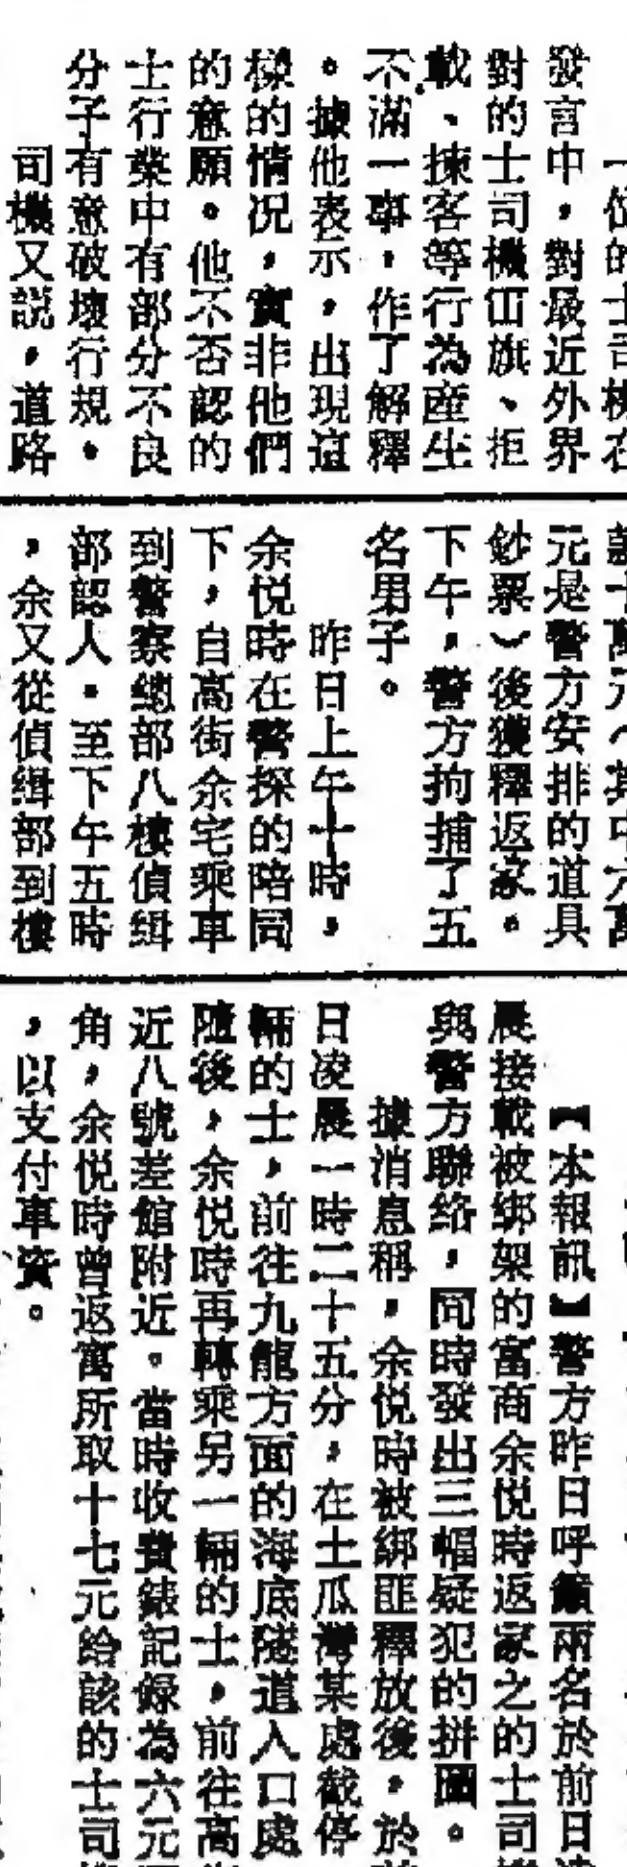 一位的士司機在
發言中，對最近外界
對的士司機冚旗、拒
載、揀客等行為產生
不滿一事，作了解釋
。據他表示，出現這
樣的情況，實非他們
的意願。他不否認的
士行業中有部分不良
分子有意破壞行規。
司機又説，道路
十萬元（其中六萬
元是警方安排的道具
鈔票）後獲釋返家。
下午，警方拘捕了五
名男子。
昨日上午十時，
余悦時在警探的陪同
下，自高街余宅乘車
到警察總部八樓偵緝
部認人。至下午五時
，余又從偵緝部到樓
【本報訊】警方昨日呼籲兩名於前日凌
晨接載被綁架的富商余悦時返家之的士司機
與警方聯絡，同時發出三幅疑犯的拼圖。
據消息稱，余悦時被綁匪釋放後，於
日凌晨一時二十五分，在土瓜灣某處截停
輛的士，前往九龍方面的海底隧道入口處
隨後，余悦時再轉乘另一輛的士，前往高
近八號差館附近。當時收費錶記錄為六元
角，余悦時曾返寓所取十七元給該的士司
，以支付車資。